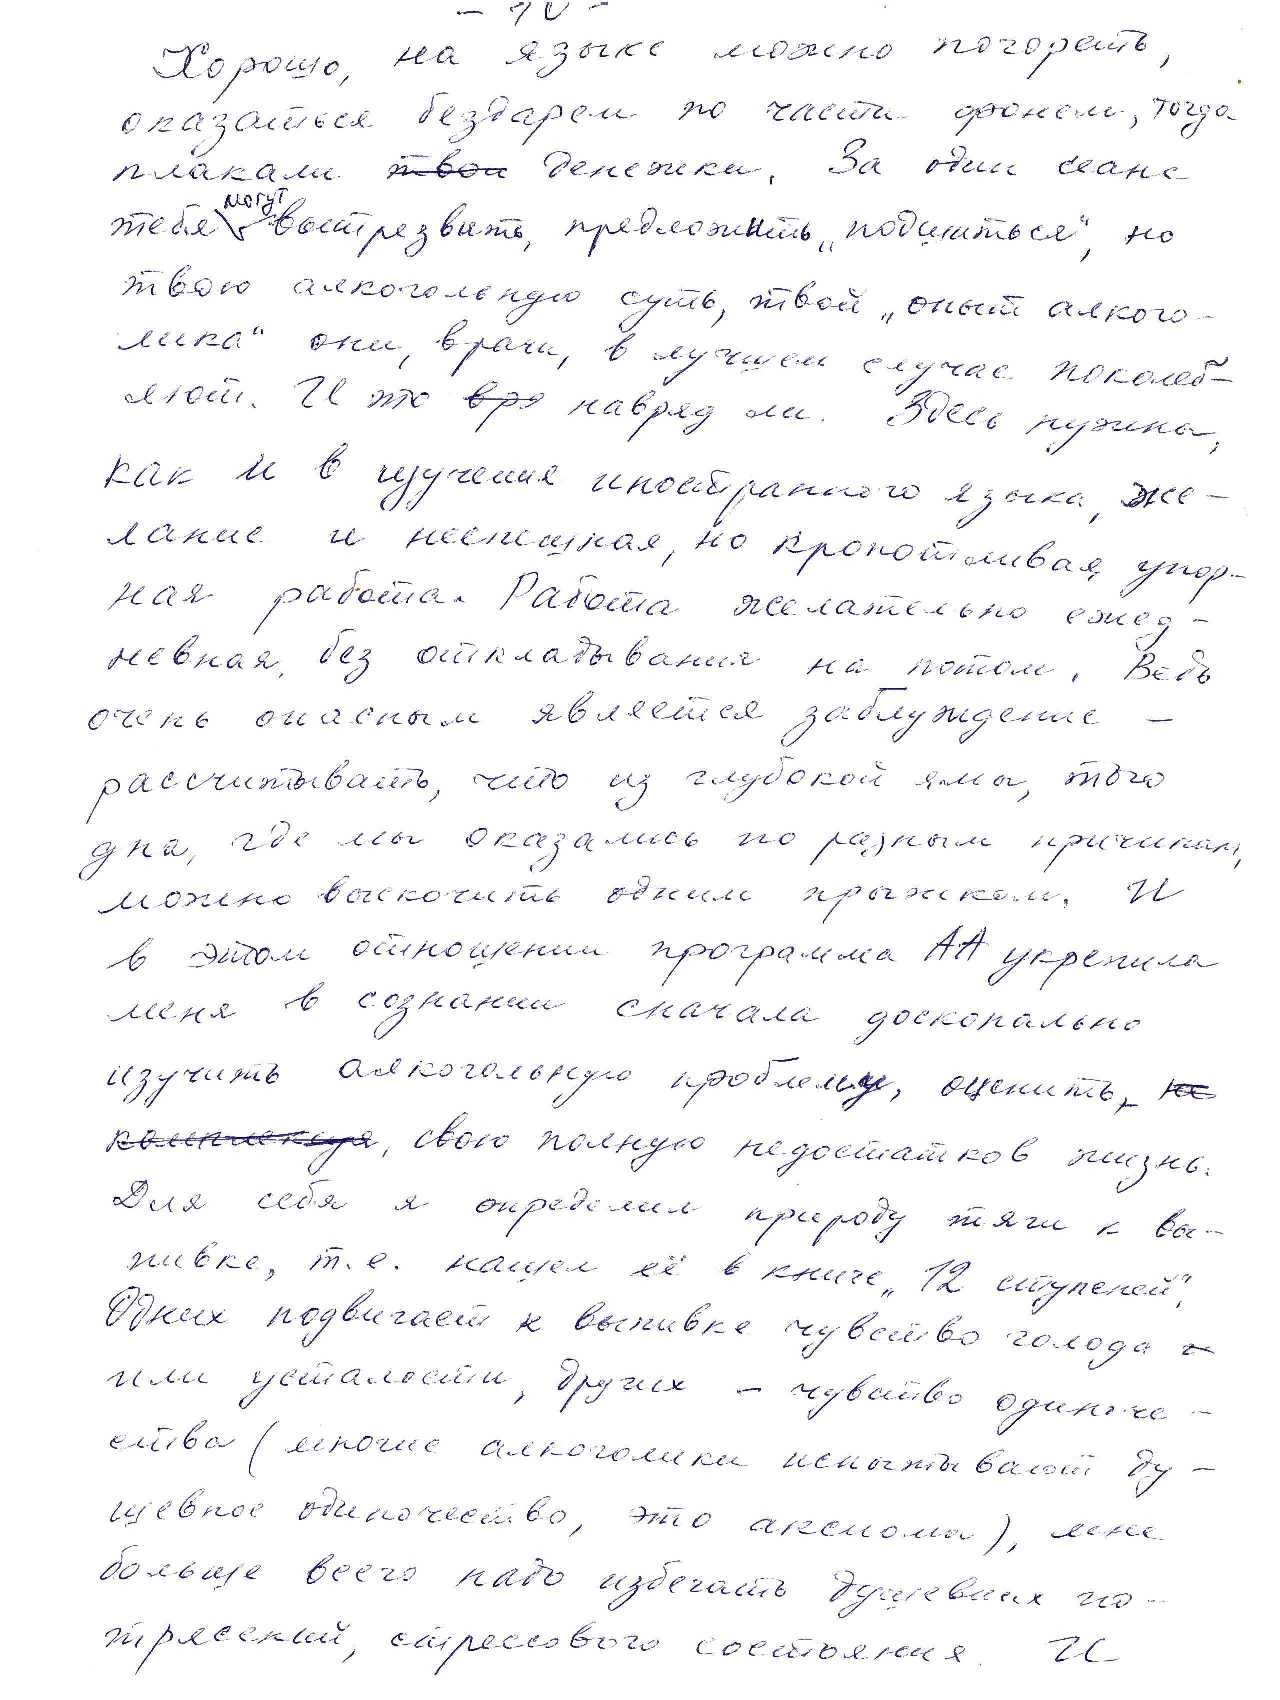 - 10 -
Хорошо, на языке можно погореть,
оказаться бездарем по части фонем, тогда
плакали твои денежки. За один сеанс
тебя могут вытрезвить, предложить „подшиться", но
твою алкогольную суть, твой „опыт алкого-
лика" они, врачи, в лучшем случае поколеб-
лют. И то вря навряд ли. Здесь нужны,
как и в изучения иностранного языка, же-
лание и неспешная, но кропотливая, упор-
ная работа. Работа желательно ежед-
невная, без откладывания на потом. Ведь
очень опасным является заблуждение -
рассчитывать, что из глубокой ямы, того
дна, где мы оказались по разным причинам,
можно выскочить одним прыжком. И
в этом отношении программа АА укрепила
меня в сознании сначала доскопально
изучить алкогольную проблему, оценить, не
комплексуя, свою полную недостатков жизнь.
Для себя я определил природу тяги к вы-
пивке, т.е. нашел её в книге „12 ступеней".
Одних подвигает к выпивке чувство голода и
или усталости, других - чувство одиноче-
ства (многие алкоголики испытывают ду-
шевное одиночество, это аксиома), мне
больше всего надо избегать душевных по-
трясений, стрессового состояния. И